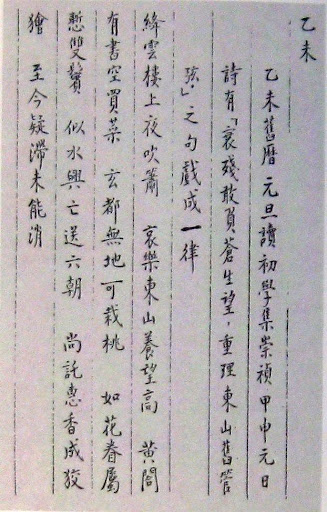 乙未
乙未舊曆元旦讀初學集崇禎甲申元日
詩有「衰殘敢負蒼生望，重理東山舊管
弦」之句戲成一律
絳雲樓上夜吹簫　哀樂東山養望高　黃閣
有書空買菜　玄都無地可栽桃　如花眷屬
慙雙鬢　似水興亡送六朝　尚託惠香成狡
獪　至今疑滯未能消